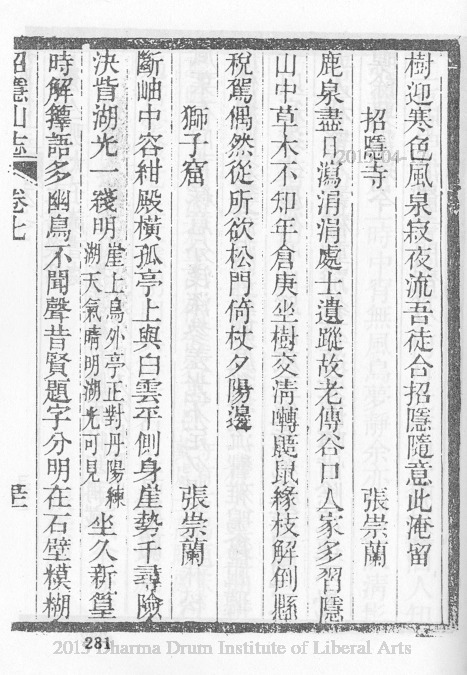 樹迎寒色風泉寂夜流吾徒合招隱隨意此淹留
招隱寺 張崇蘭
鹿泉盡日瀉涓涓處士遺蹤故老傳谷口人家多習隱
山中草木不知年倉庚坐樹交淸囀鼯鼠緣枝解倒縣
稅駕偶然從所欲松門倚杖夕陽邊
獅子窟 張崇蘭
斷岫中容紺殿橫孤亭上與白雲平側身崖勢千尋險
決眥湖光一綫明崖上鳥外亭正對丹陽練湖天氣晴明湖光可見坐久新篁
時解籜語多幽鳥不聞聲昔賢題字分明在石壁模糊
招隱山志 卷七
281
2013 Dharma Drum Institute of Liberal Arts